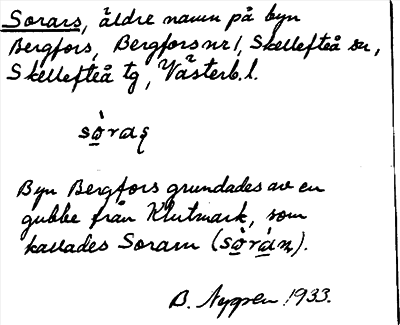 Sorars, äldre namn på byn
Bergfors, Bergfors nr 1, Skellefteå sn,
Skellefteå tg, Västerb. l.
sò̲raʂ
Byn Bergfors grundades av en
gubbe från Klutmark, som
kallades Soram (sò̲rán̲).
B. Nygren 1933.